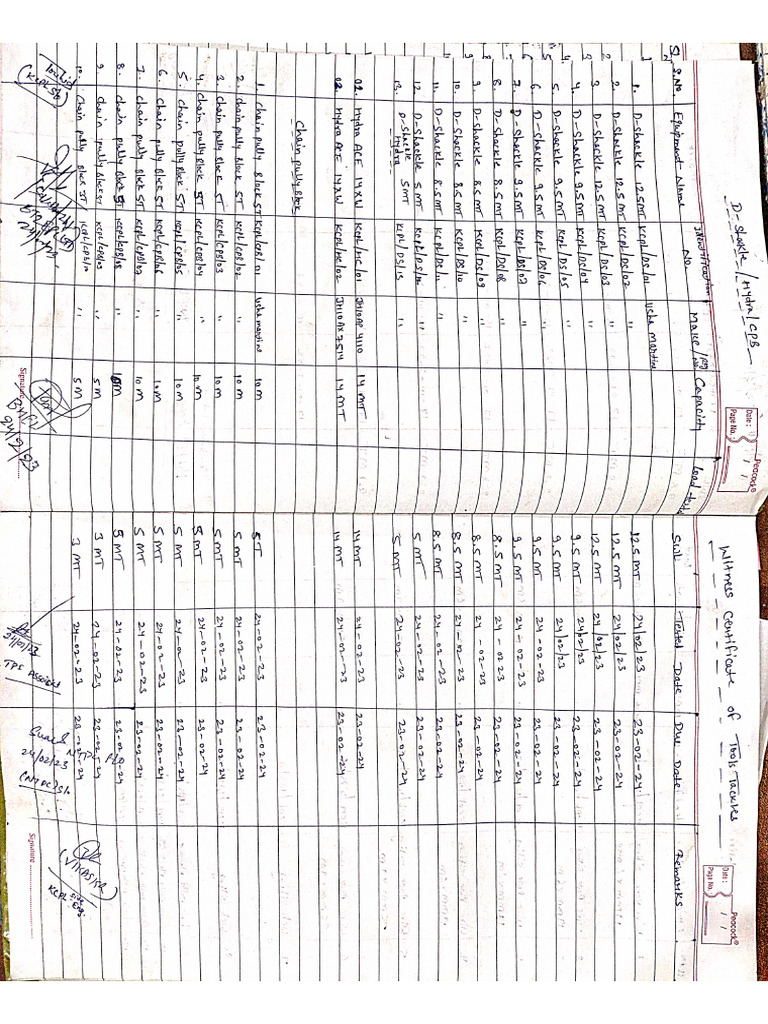 D-Shackle / Hydra / CPB
Witness Certificate of Tools Tackles
Peacock®
Date :
Page No. :
Peacock®
Date :
Page No. :
S.No. Equipment Name Identification No. Make / Capacity Load test SWL Tested Date Due Date Remarks
1. D-Shackle 12.5MT KCPL/DS/01 Usha Martine 12.5 MT 24/02/23 23-02-24
2. D-Shackle 12.5 MT KCPL/DS/02 " 12.5 MT 24/02/23 23-02-24
3 D-Shackle 12.5 MT KCPL/DS/03 " 12.5 MT 24/02/23 23-02-24
4. D-Shackle 9.5 MT KCPL/DS/04 " 9.5 MT 24/2/23 23-02-24
5 D-Shackle 9.5 MT KCPL/DS/05 " 9.5 MT 24/02/23 23-02-24
6 D-Shackle 9.5 MT " 9.5 MT 24-02-23 23-02-24
7. D-Shackle 9.5 MT KCPL/DS/07 " 9.5 MT 24-02-23 23-02-24
8. D-Shackle 8.5 MT KCPL/DS/08 " 8.5 MT 24-02-23 23-02-24
9 D-Shackle 8.5 MT KCPL/DS/09 " 8.5 MT 24-02-23 23-02-24
10. D-Shackle 8.5 MT KCPL/DS/10 " 8.5 MT 24-02-23 23-02-24
11. D-Shackle 8.5 MT KCPL/DS/11 " 8.5 MT 24-02-23 23-02-24
12. D-Shackle 5 MT KCPL/DS/12 " 5 MT 24-02-23 23-02-24
13. D-Shackle 5MT KCPL/DS/13 " 5 MT 24-02-23 23-02-24
Hydra
01. Hydra ACE 14XW KCPL/HC/01 JH10AP 4110 14 MT 14 MT 24-02-23 23-02-24
02. Hydra ACE 14XW KCPL/HC/02 JH10AX7514 14 MT 14 MT 24-02-23 23-02-24
Chain pully Block
1. Chain pully Block 5T KCPL/CPB/01 Usha martine 10 M 5T 24-02-23 23-02-24
2. Chain pully Block 5T KCPL/CPB/02 " 10 M 5 MT 24-02-23 23-02-24
3. Chain pully Block 5T KCPL/CPB/03 " 10 M 5 MT 24-02-23 23-02-24
4. Chain pully Block 5T KCPL/CPB/04 " 10 M 5 MT 24-02-23 23-02-24
5. Chain pully Block 5T KCPL/CPB/05 " 10 M 5 MT 24-02-23 23-02-24
6. Chain pully Block 5T KCPL/CPB/06 " 10 M 5 MT 24-02-23 23-02-24
7. Chain pully Block 5T " 10 M 5 MT 24-02-23 23-02-24
8. Chain pully Block 5T KCPL/CPB/08 " 10M 5 MT 24-02-23 23-02-24
9. Chain pully Block 3T " 5 M 3 MT 24-02-23 23-02-24
10. Chain pully Block 3T " 5 M 3 MT 24-02-23 23-02-24
Signature
BHEL
24/2/23
24/02/23
(VIKASKR)
KCPL Site Eng.
Signature